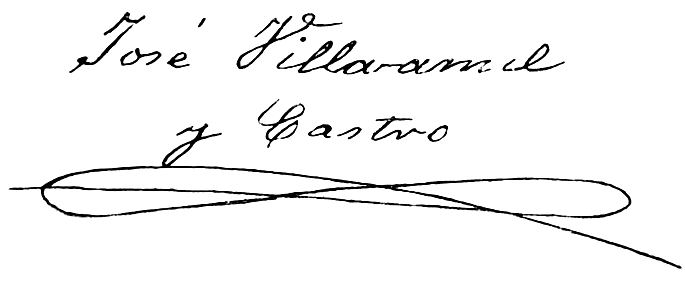 José Villaamil
y Castro